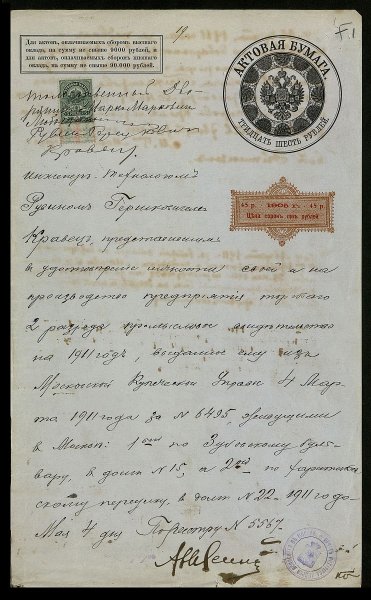 Для актовъ, оплачиваемыхъ сборомъ высшаго
оклада, на сумму не свыше 9000 рублей, и
для актовъ, оплачиваемыхъ сборомъ низшаго
оклада, на сумму не свыше 90.000 рублей.
АКТОВАЯ БУМАГА
ТРИДЦАТЬ ШЕСТЬ РУБЛЕЙ.
F.1
Кравец
инженер технологомъ
45 р. 1908 г. 45 р.
Цѣна сорокъ пять рублей
Рувиномъ Гершковичемъ
Кравецъ, представившимъ
въ удостовѣренiе личности своей а на
производство предпрiятiя торговаго
2 разряда промысловое свидѣтельство
на 1911 годъ, выданное ему изъ
Московской Купеческой Управы 4 Мар-
та 1911 года за № 6495, живущими
въ Москвѣ: 1ый по Зубовскому буль-
вару, въ домѣ № 15, а 2ой по
скому переулку, въ домѣ № 22. 1911 года
Мая 4 дня По реестру № 5567.